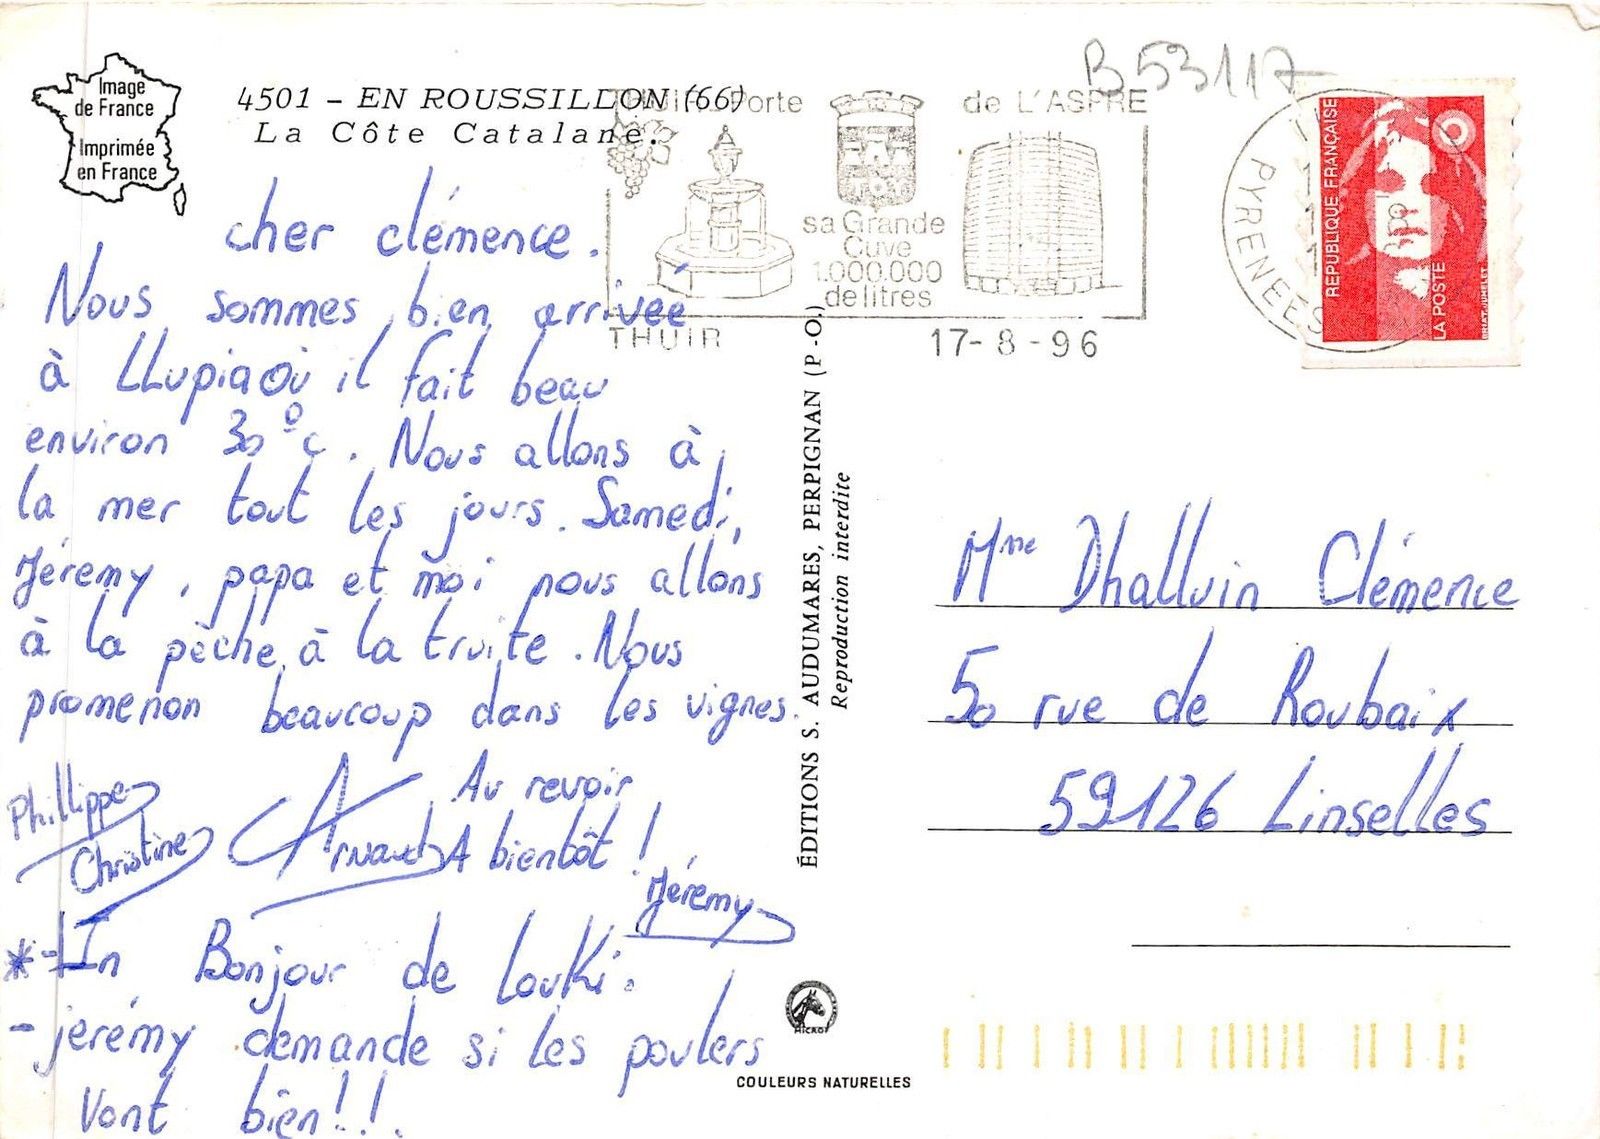 Image
de France
Imprimée
en France
4501 - EN ROUSSILLON (66)
La Côte Catalane.
B 53117
Thuir Porte de L'ASPRE
sa Grande
Cuve
1.000.000
de litres
THUIR 17-8-96
PYRENEES
REPUBLIQUE FRANÇAISE
LA POSTE
BRIAT-JUMELET
cher clémence.
Nous sommes bien arrivée
à LLupia où il fait beau
environ 30°c. Nous allons à
la mer tout les jours. Samedi,
Jéremy, papa et moi nous allons
à la pèche à la truite. Nous
promenon beaucoup dans les vignes.
Au revoir
A bientôt !
Phillippe
Christine
Arnaud
Jéremy
*-In Bonjour de Louki.
- jerémy demande si les poulers
vont bien!!.
ÉDITIONS S. AUDUMARES, PERPIGNAN (P.-O.)
Reproduction interdite
MICRO
COULEURS NATURELLES
Mme Dhalluin Clémence
50 rue de Roubaix
59126 Linselles